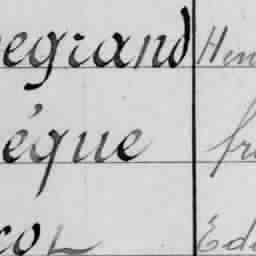 egrand Hen
éque fr
col Ed